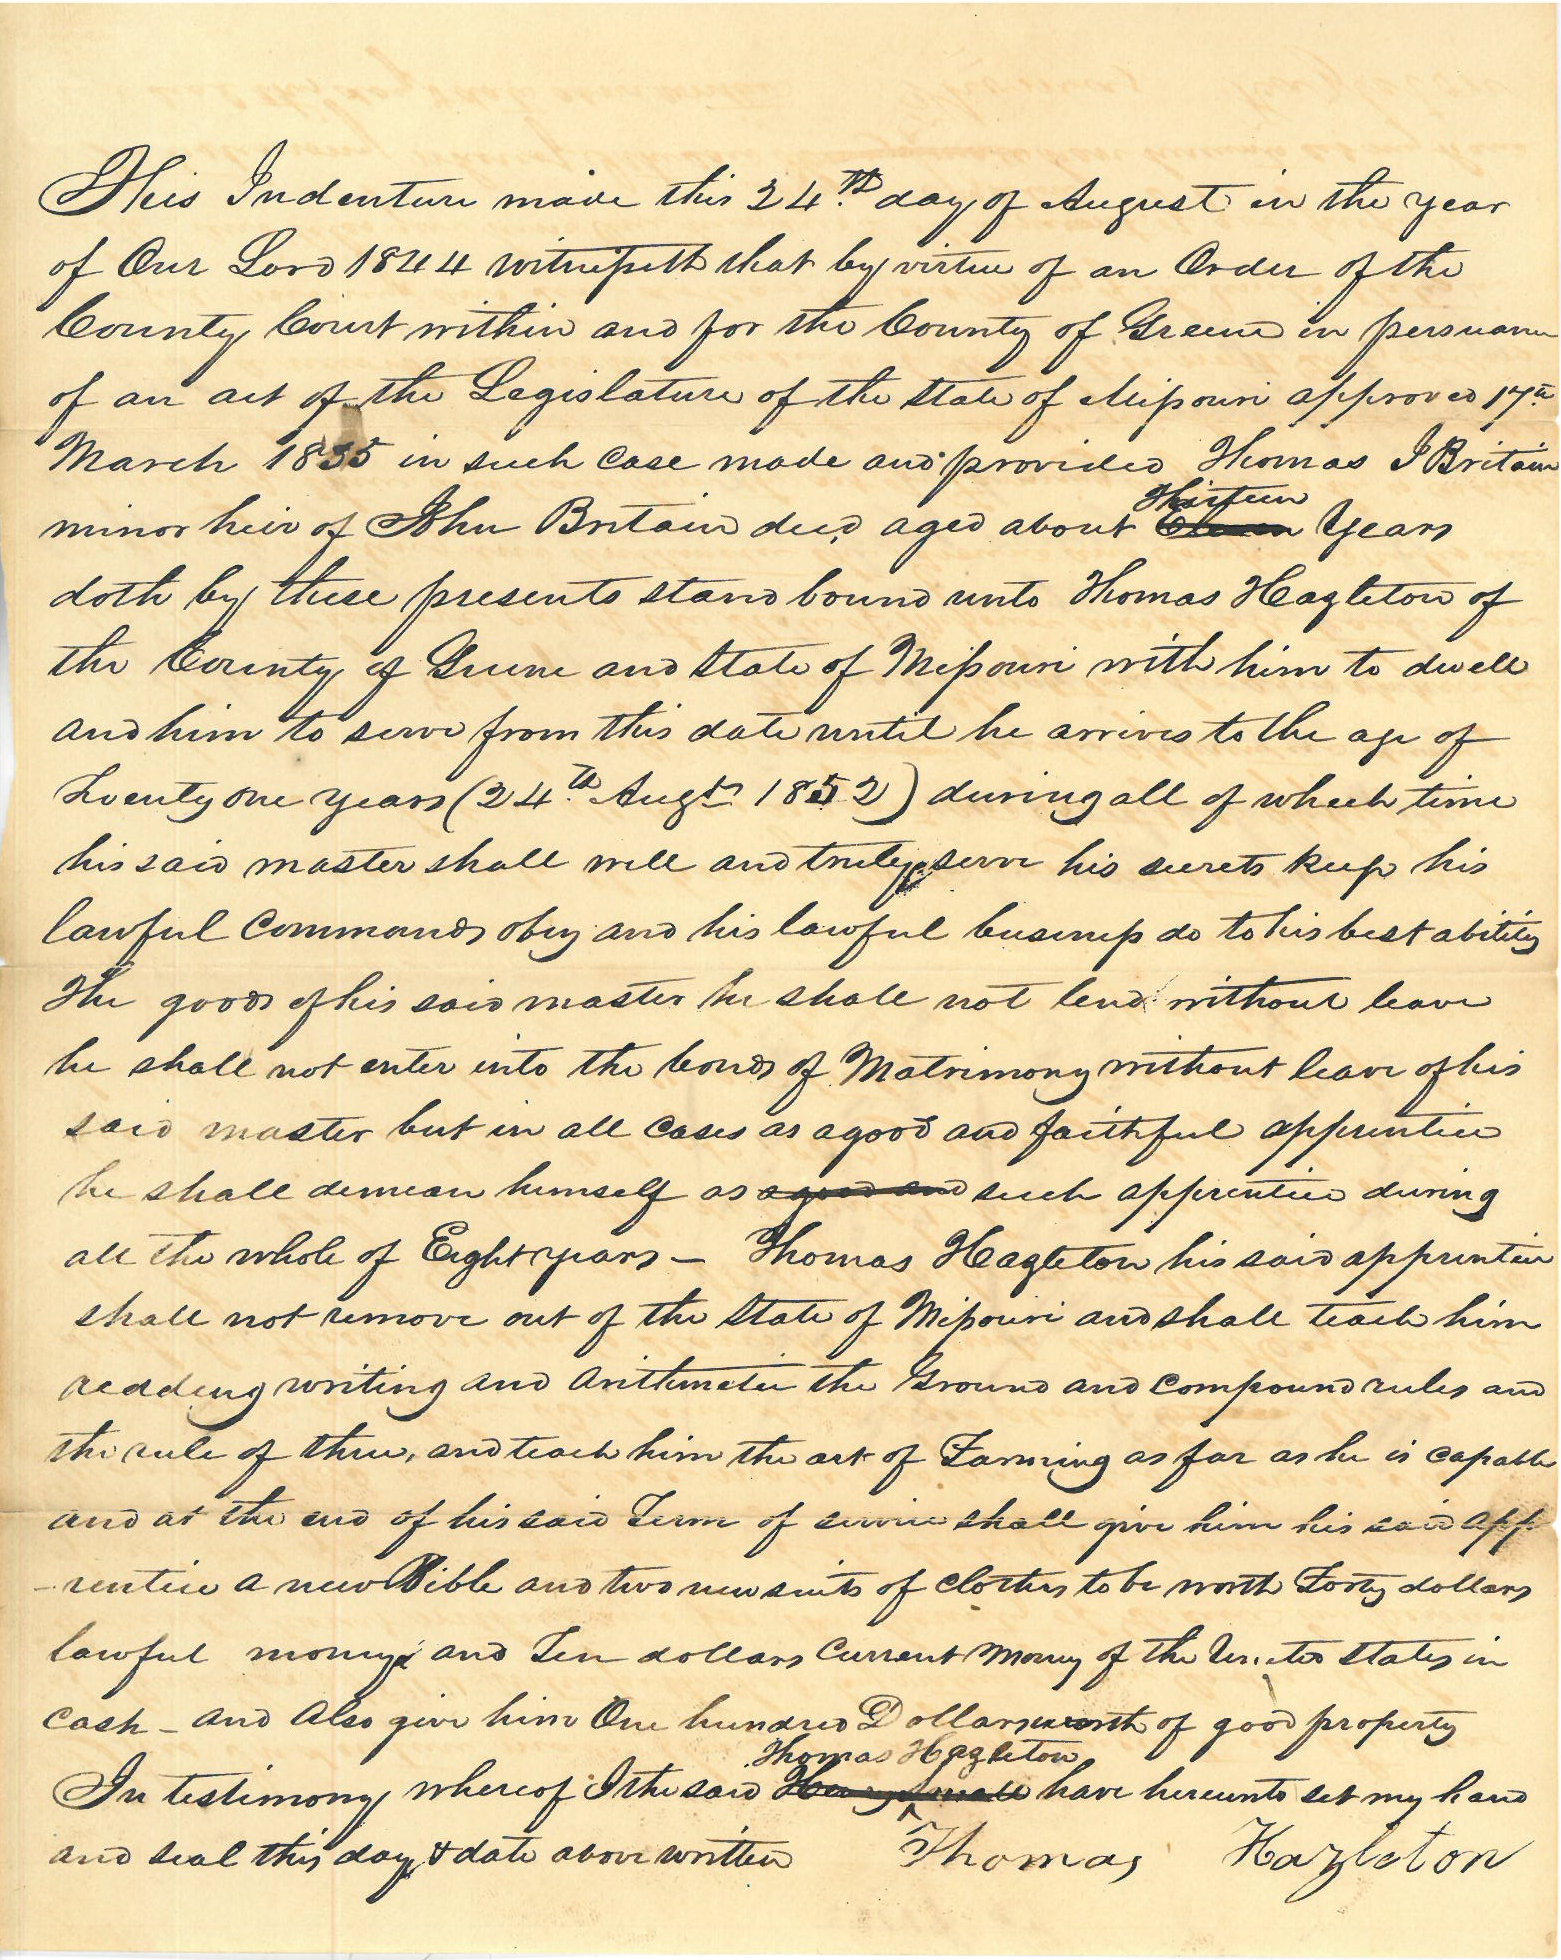 This Indenture made this 24th day of August in the year
of Our Lord 1844 witnesseth that by virtue of an Order of the
County Court within and for the County of Greene in persuance
of an act of the Legislature of the State of Missouri approved 17th
March 1835 in such case made and provided Thomas J Britain
Thirteen
minor heir of John Britain decd aged about Eleven Years
doth by these presents stand bound unto Thomas Hazleton of
the County of Greene and State of Missouri with him to dwell
and him to serve from this date until he arrives to the age of
Twenty one years (24th Augt 1852) during all of which time
his said master shall well and truly serve his secrets keep his
lawful Commands obey and his lawful business do to his best ability
The goods of his said master he shall not lend without leave
he shall not enter into the bonds of Matrimony without leave of his
said master but in all cases as a good and faithful apprentice
he shall demean himself as a good and such apprentice during
all the whole of Eight years – Thomas Hazleton his said apprentice
shall not remove out of the State of Missouri and shall teach him
reading writing and arithmetic the Ground and compound rules and
the rule of three, and teach him the art of Farming as far as he is capable
and at the end of his said Term of service shall give him his said app
-rentice a new Bible and two new suits of clothes to be worth Forty dollars
lawful money and Ten dollars Current Money of the United States in
cash – and also give him One hundred Dollars worth of good property
Thomas Hazleton
In testimony whereof I the said Henry Small have hereunto set my hand
and seal this day & date above written Thomas Hazleton